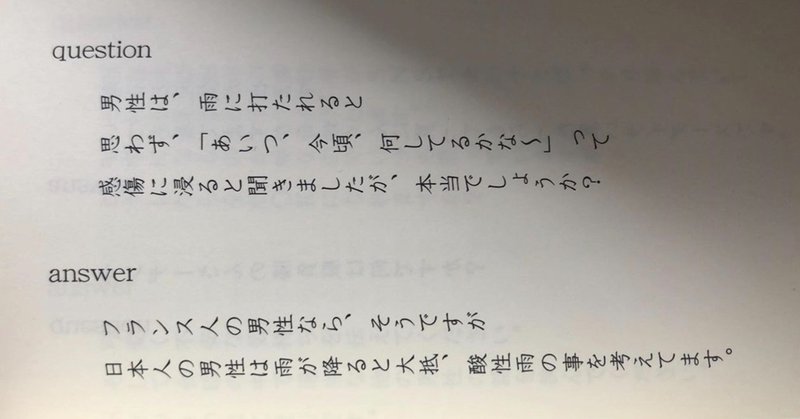 question
男性は、雨に打たれると
思わず、「あいつ、今頃、何してるかな〜」って
感傷に浸ると聞きましたが、本当でしょうか?
answer
フランス人の男性なら、そうですが
日本人の男性は雨が降ると大抵、酸性雨の事を考えてます。